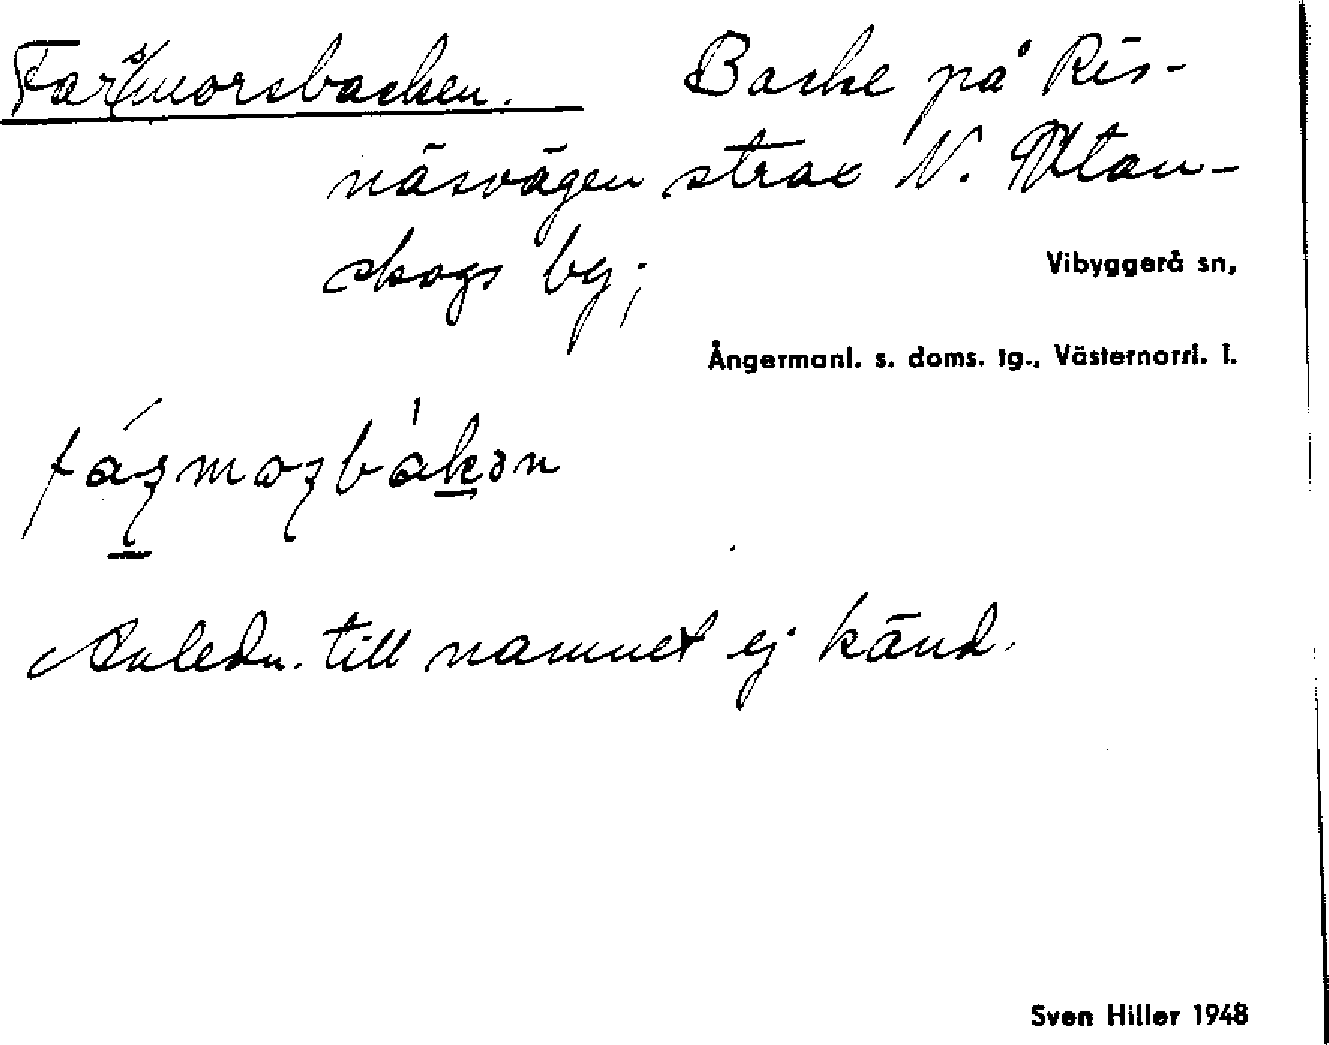 Farsmorsbacken. Backe på Ris-
näsvägen strax N. Utan-
skogs by;
Vibyggerå sn,
Ångermanl. s. doms. tg., Västernorrl. l.
Anledn. till namnet ej känd.
Sven Hiller 1948